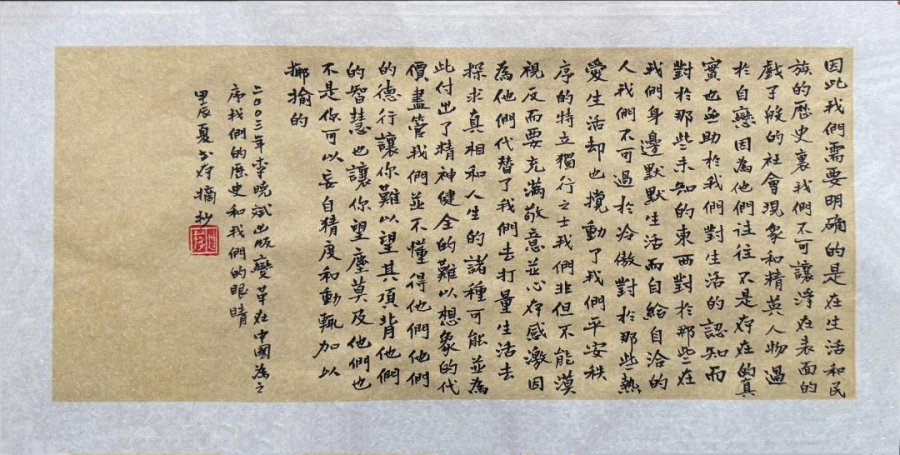 因此我們需要明确的是在生活和民
族的歷史裏我們不可讓浮在表面的
戲了般的社會現象和精英人物過
於自戀因為他們往往不是存在的真
實也無助於我們對生活的認知而
對於那些未知的東西對於那些在
我們身邊默默生活而自給自洽的
人我們不可過於冷傲對於那些熱
愛生活却也攪動了我們平安秩
序的特立獨行之士我們非但不能漠
視反而要充滿敬意並心存感激因
為他們代替了我們去打量生活去
探求真相和人生的諸種可能並為
此付出了精神健全的難以想象的代
價盡管我們並不懂得他們他們
的德行讓你難以望其項背他們
的智慧也讓你望塵莫及他們也
不是你可以妄自猜度和動輒加以
揶揄的
二〇〇三年李曉斌出版變革在中國為之
序我們的歷史和我們的眼睛
甲辰夏於存摘抄